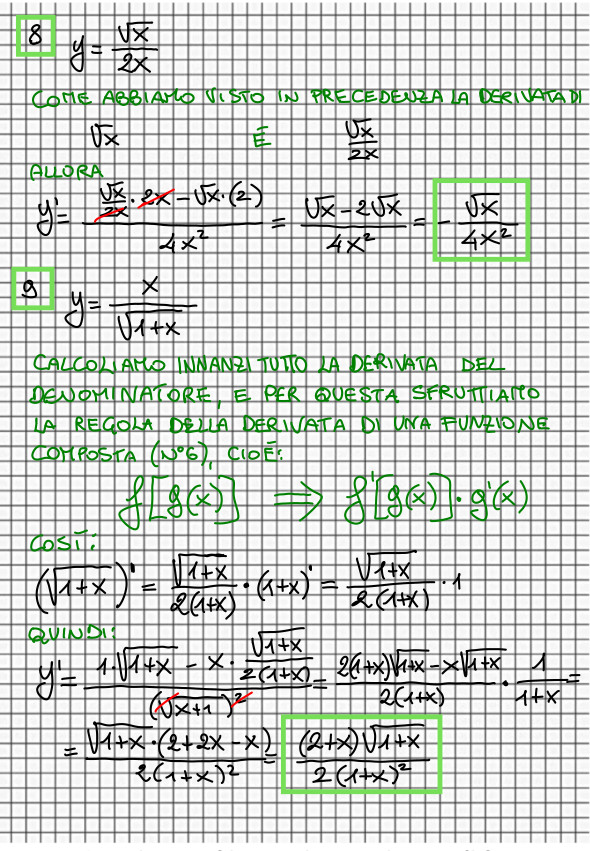 8 y = √x / 2x
COME ABBIAMO VISTO IN PRECEDENZA LA DERIVATA DI
√x È √x / 2x
ALLORA
y' = (√x / 2x · 2x − √x · (2)) / 4x² = (√x − 2√x) / 4x² = − √x / 4x²
9 y = x / √1+x
CALCOLIAMO INNANZI TUTTO LA DERIVATA DEL
DENOMINATORE, E PER QUESTA SFRUTTIAMO
LA REGOLA DELLA DERIVATA DI UNA FUNZIONE
COMPOSTA (N°6), CIOÈ:
f[g(x)] ⟹ f'[g(x)] · g'(x)
COSÌ:
(√1+x)' = √1+x / 2(1+x) · (1+x)' = √1+x / 2(1+x) · 1
QUINDI:
y' = (1·√1+x − x · √1+x / 2(1+x)) / (√x+1)² = (2(1+x)√1+x − x√1+x) / 2(1+x) · 1 / 1+x =
= √1+x · (2+2x−x) / 2(1+x)² = (2+x)√1+x / 2(1+x)²